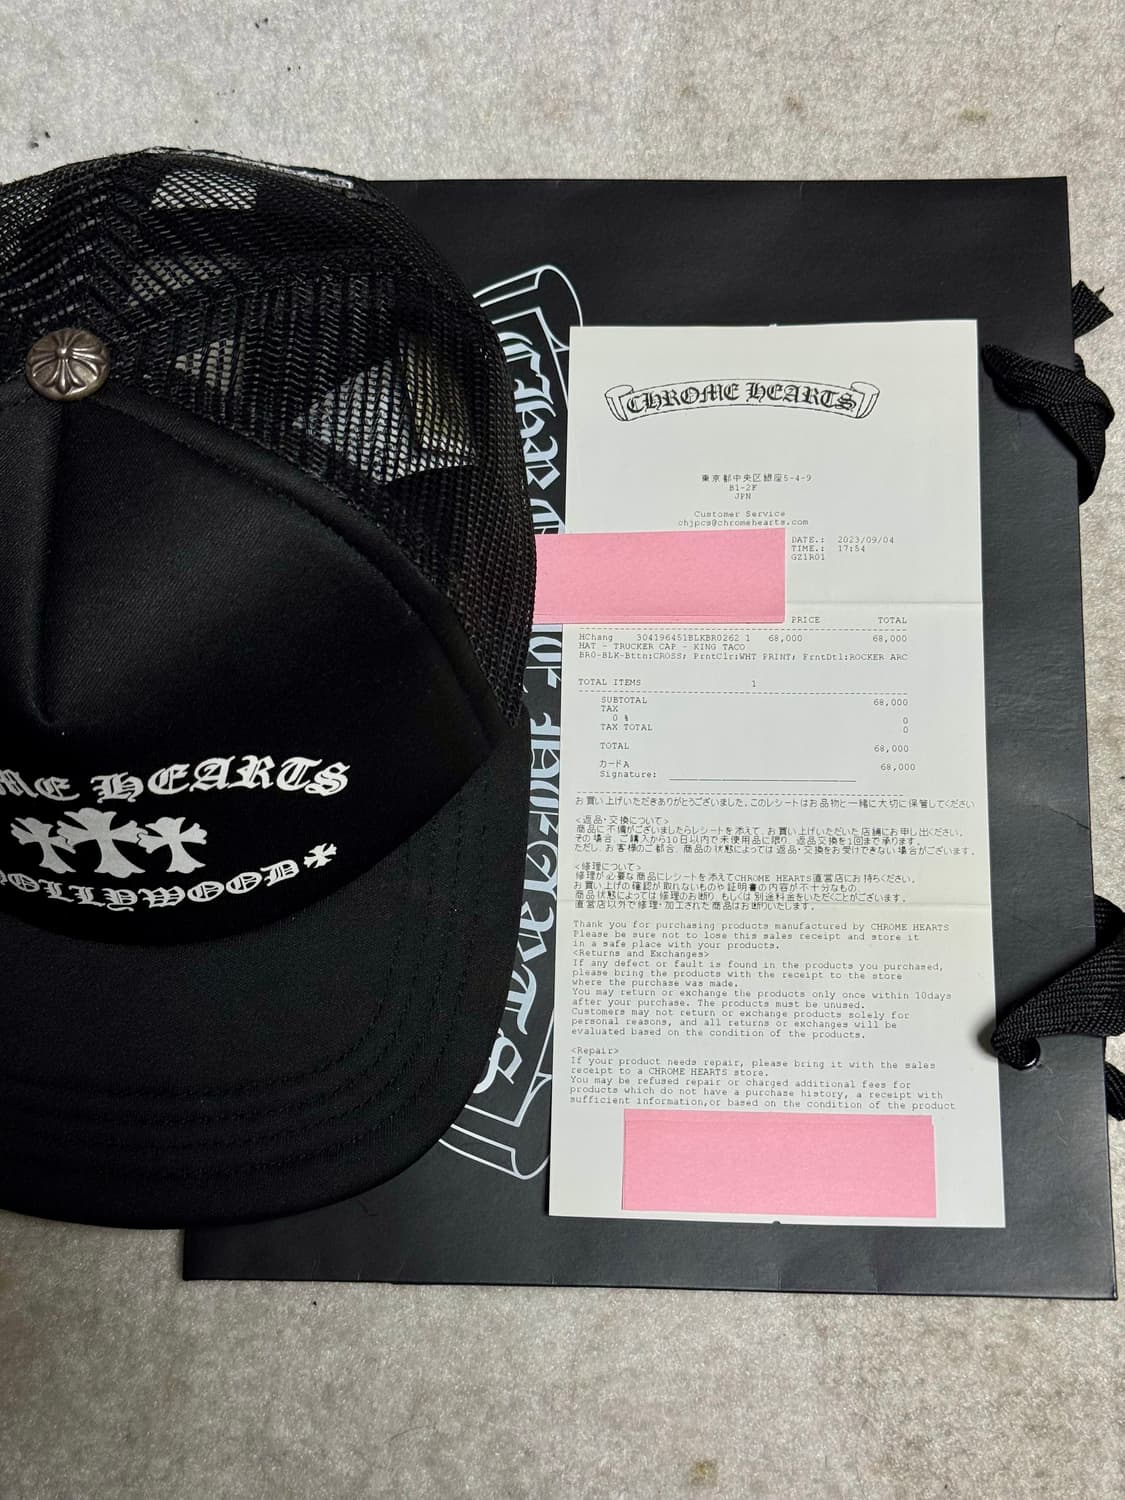 CHROME HEARTS
東京都中央区銀座5-4-9
B1-2F
JPN
Customer Service
chjpcs@chromehearts.com
DATE.: 2023/09/04
TIME.: 17:54
GZ1R01
PRICE TOTAL
HChang 304196451BLKBR0262 1 68,000 68,000
HAT - TRUCKER CAP - KING TACO
BRO-BLK-Bttn:CROSS; PrntClr:WHT PRINT; FrntDtl:ROCKER ARC
TOTAL ITEMS 1
SUBTOTAL 68,000
TAX
0 % 0
TAX TOTAL 0
TOTAL 68,000
カードA 68,000
Signature:
お買い上げいただきありがとうございました。このレシートはお品物と一緒に大切に保管してください
<返品・交換について>
商品に不備がございましたらレシートを添えて、お買い上げいただいた店舗にお申し出ください。
その場合、ご購入から10日以内で未使用品に限り、返品交換を1回まで承ります。
ただし、お客様のご都合、商品の状態によっては返品・交換をお受けできない場合がございます。
<修理について>
修理が必要な商品にレシートを添えてCHROME HEARTS直営店にお持ちください。
お買い上げの確認が取れないものや証明書の内容が不十分なもの、
商品状態によっては修理のお断り、もしくは別途料金をいただくことがございます。
直営店以外で修理・加工された商品はお断りいたします。
Thank you for purchasing products manufactured by CHROME HEARTS
Please be sure not to lose this sales receipt and store it
in a safe place with your products.
<Returns and Exchanges>
If any defect or fault is found in the products you purchased,
please bring the products with the receipt to the store
where the purchase was made.
You may return or exchange the products only once within 10days
after your purchase. The products must be unused.
Customers may not return or exchange products solely for
personal reasons, and all returns or exchanges will be
evaluated based on the condition of the products.
<Repair>
If your product needs repair, please bring it with the sales
receipt to a CHROME HEARTS store.
You may be refused repair or charged additional fees for
products which do not have a purchase history, a receipt with
sufficient information,or based on the condition of the product
ME HEARTS
OLLYWOOD